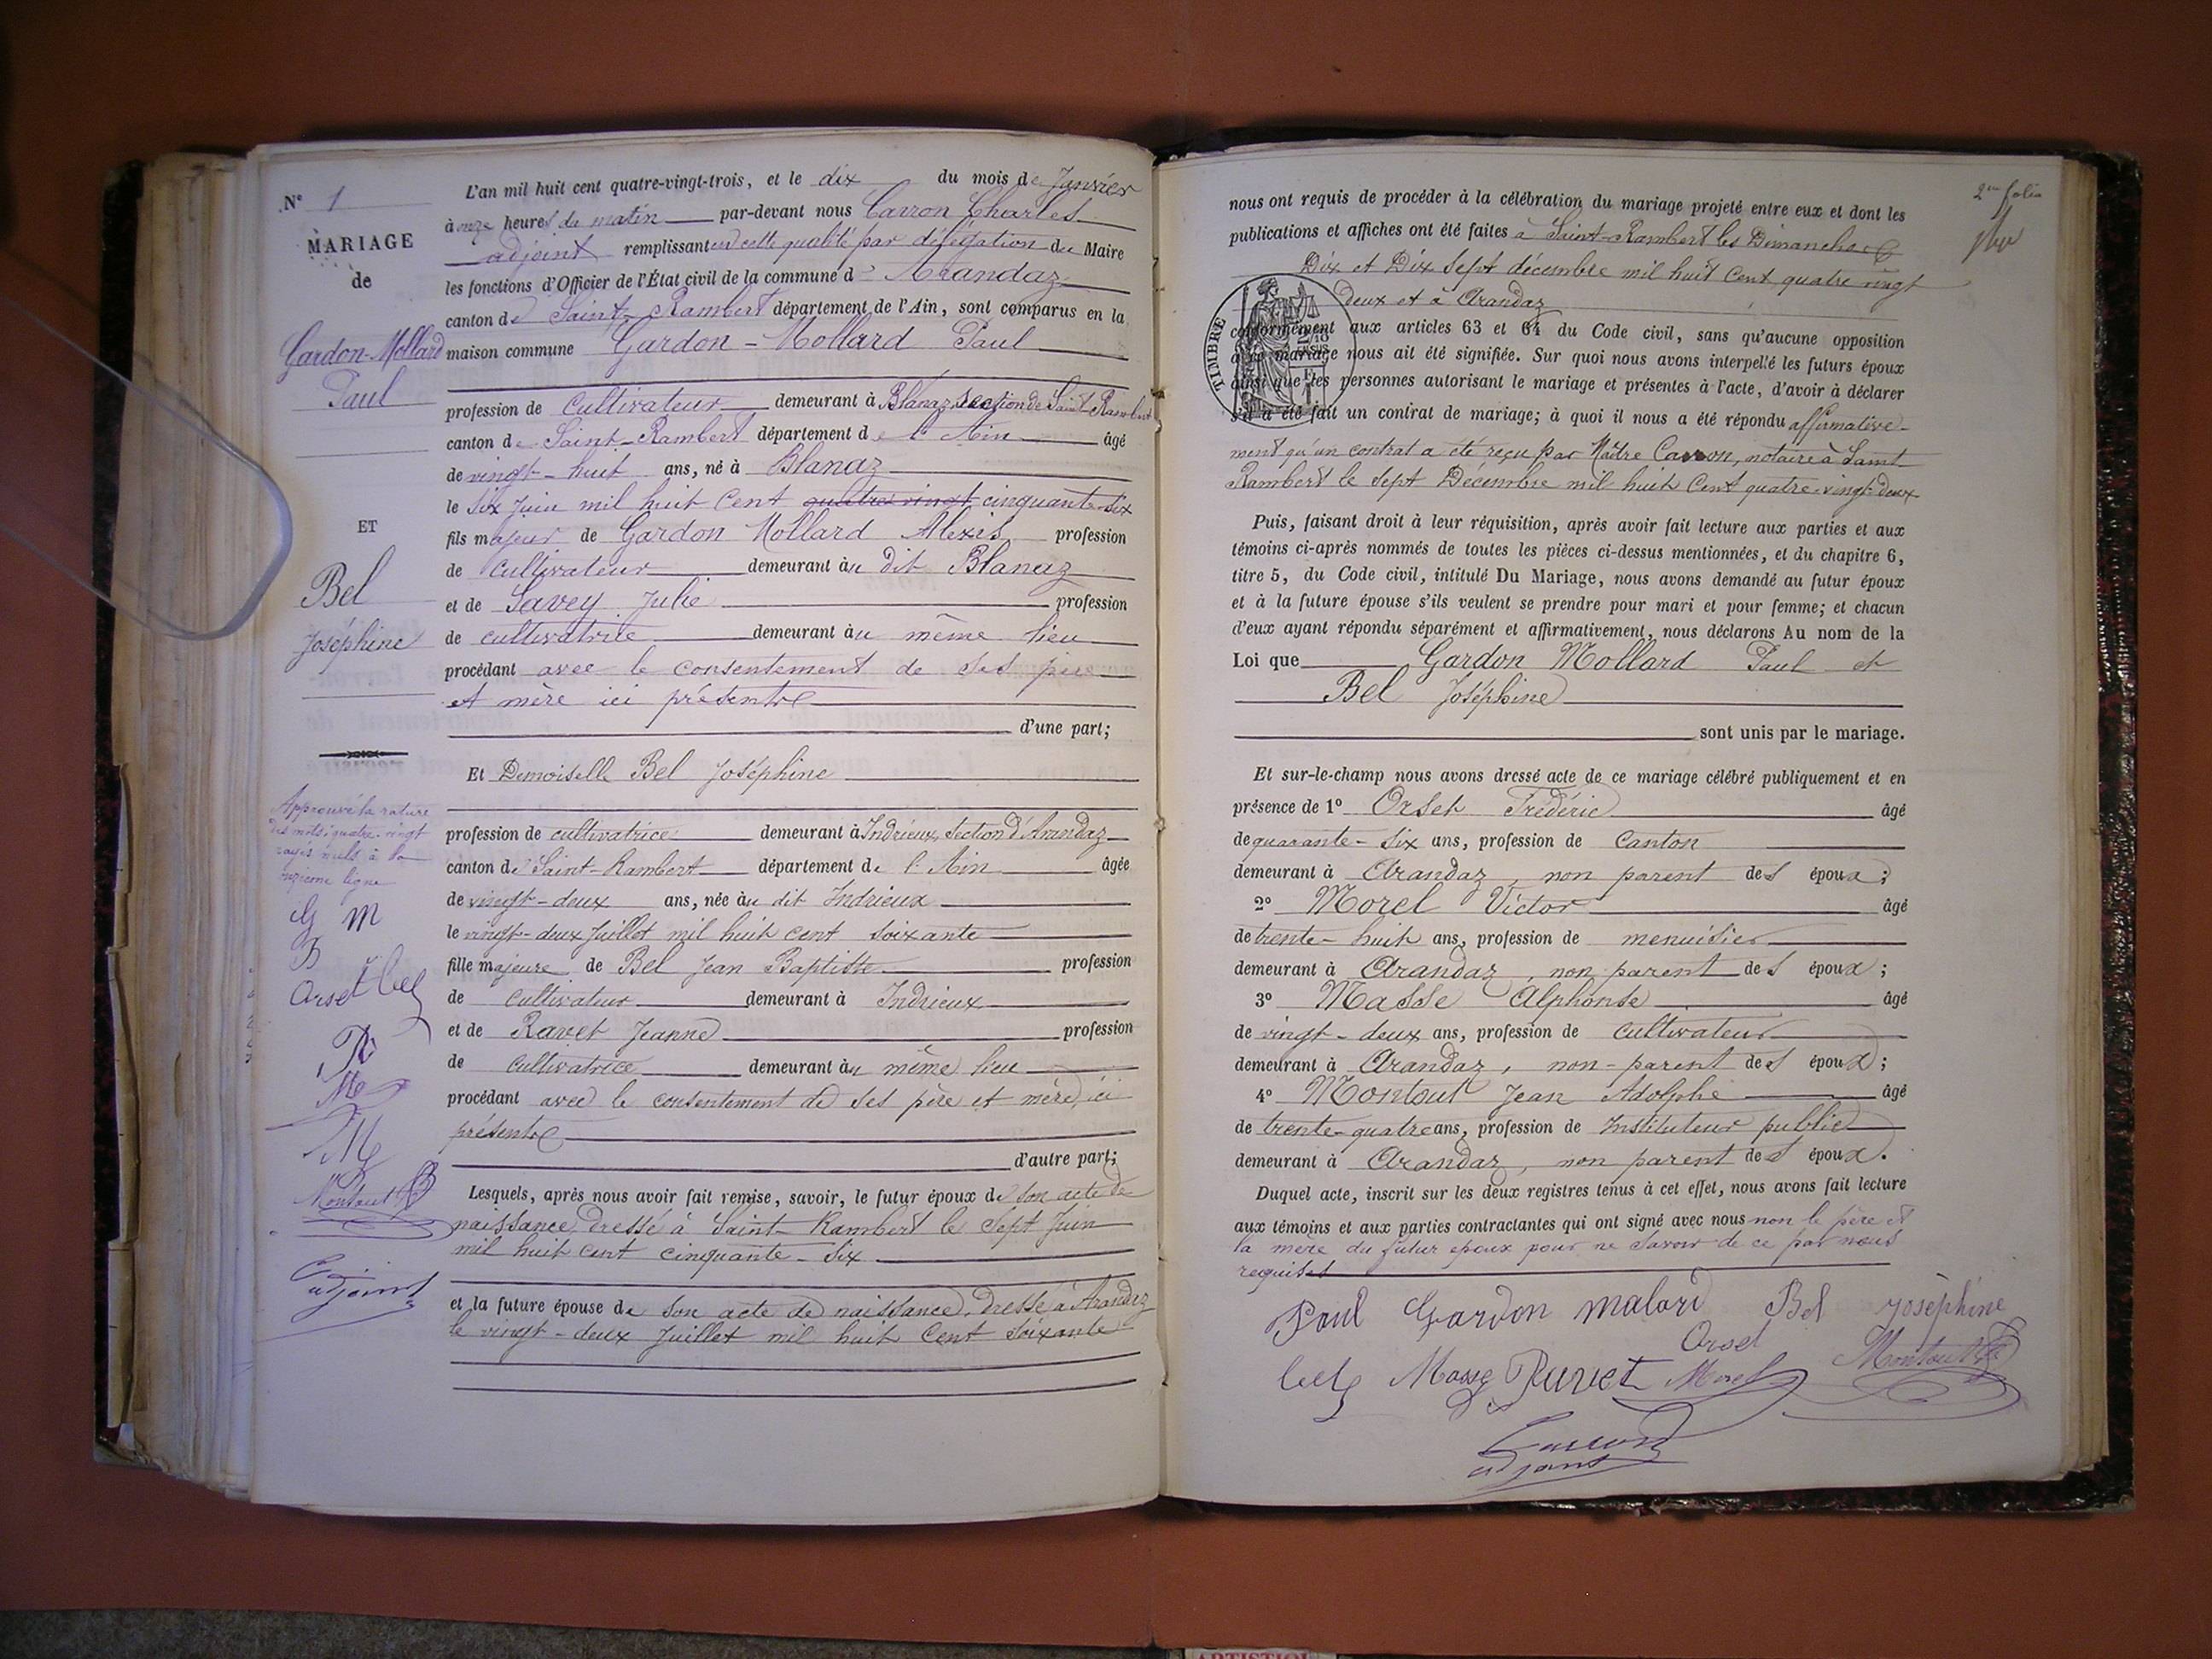 N° 1
MARIAGE
de
Gardon-Mollard
Paul
ET
Bel
Joséphine
Approuvé la rature
des mots quatre-vingt
rayés nuls à la
onzième ligne
G M
B
Orset
Montout
adjoint
L'an mil huit cent quatre-vingt-trois, et le dix du mois de Janvier
à onze heures du matin par-devant nous Carron Charles
adjoint remplissant en cette qualité par délégation du Maire
les fonctions d'Officier de l'État civil de la commune d' Arandaz
canton de Saint-Rambert département de l'Ain, sont comparus en la
maison commune Gardon-Mollard Paul
profession de Cultivateur demeurant à Blanaz, section de Saint Rambert
canton de Saint-Rambert département de l'Ain âgé
de vingt-huit ans, né à Blanaz
le Six Juin mil huit Cent quatre vingt cinquante-six
fils majeur de Gardon Mollard Alexis profession
de Cultivateur demeurant au dit Blanaz
et de Savey Julie profession
de cultivatrice demeurant au même lieu
procédant avec le consentement de ses père
et mère ici présents
d'une part;
Et Demoiselle Bel Joséphine
profession de cultivatrice demeurant à Indrieux, Section d'Arandaz
canton de Saint-Rambert département de l'Ain âgée
de vingt-deux ans, née au dit Indrieux
le vingt-deux Juillet mil huit cent soixante
fille majeure de Bel Jean Baptiste profession
de Cultivateur demeurant à Indrieux
et de Ravet Jeanne profession
de Cultivatrice demeurant au même lieu
procédant avec le consentement de ses père et mère, ici
présents
d'autre part;
Lesquels, après nous avoir fait remise, savoir, le futur époux de son acte de
naissance, dressé à Saint-Rambert le Sept Juin
mil huit cent cinquante-six
et la future épouse de son acte de naissance, dressé à Arandaz
le vingt-deux Juillet mil huit Cent soixante
2me folio
nous ont requis de procéder à la célébration du mariage projeté entre eux et dont les
publications et affiches ont été faites à Saint-Rambert les Dimanches
Dix et Dix sept décembre mil huit Cent quatre vingt
deux et à Arandaz
TIMBRE
conformément aux articles 63 et 64 du Code civil, sans qu'aucune opposition
à ce mariage nous ait été signifiée. Sur quoi nous avons interpellé les futurs époux
ainsi que les personnes autorisant le mariage et présentes à l'acte, d'avoir à déclarer
s'il a été fait un contrat de mariage; à quoi il nous a été répondu affirmative-
ment qu'un contrat a été reçu par Maître Carron, notaire à Saint
Rambert le Sept Décembre mil huit Cent quatre-vingt-deux
Puis, faisant droit à leur réquisition, après avoir fait lecture aux parties et aux
témoins ci-après nommés de toutes les pièces ci-dessus mentionnées, et du chapitre 6,
titre 5, du Code civil, intitulé Du Mariage, nous avons demandé au futur époux
et à la future épouse s'ils veulent se prendre pour mari et pour femme; et chacun
d'eux ayant répondu séparément et affirmativement, nous déclarons Au nom de la
Loi que Gardon Mollard Paul et
Bel Joséphine
sont unis par le mariage.
Et sur-le-champ nous avons dressé acte de ce mariage célébré publiquement et en
présence de 1° Orset Frédéric âgé
de quarante-six ans, profession de Canton
demeurant à Arandaz, non parent des époux;
2° Morel Victor âgé
de trente-huit ans, profession de menuisier
demeurant à Arandaz, non parent des époux;
3° Masse Alphonse âgé
de vingt-deux ans, profession de Cultivateur
demeurant à Arandaz, non-parent des époux;
4° Montout Jean Adolphe âgé
de trente-quatre ans, profession de Instituteur public
demeurant à Arandaz, non parent des époux.
Duquel acte, inscrit sur les deux registres tenus à cet effet, nous avons fait lecture
aux témoins et aux parties contractantes qui ont signé avec nous non le père et
la mère du futur époux pour ne savoir de ce par nous
requis
Paul Gardon malard Bel Joséphine
Orset
Masse Morel Montout
Carron
adjoint